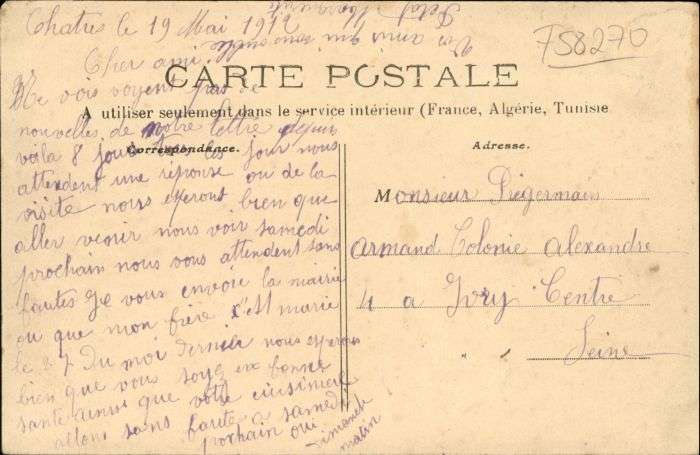 Chatres le 19 Mai 1912
758270
Vos amis qui vous
Petit
Cher ami
CARTE POSTALE
A utiliser seulement dans le service intérieur (France, Algérie, Tunisie
Correspondance.
Adresse.
Ne vois voyent pas de
nouvelles de notre lettre depuis
voila 8 jours tous les jour nous
attendent une réponse ou de la
visite nous esperont bien que
aller venir nous voir samedi
prochain nous vous attendent sans
fautes Je vous envoie la mairie
ou que mon frère s'est marié
le 27 Du moi dernier nous esperons
bien que vous soyez en bonne
santé ainsi que votre cuisiniere
allons sans faute a samedi
prochain oui
dimanche
matin
Monsieur Piégermain
Armand Colonie Alexandre
4 a Ivry Centre
Seine